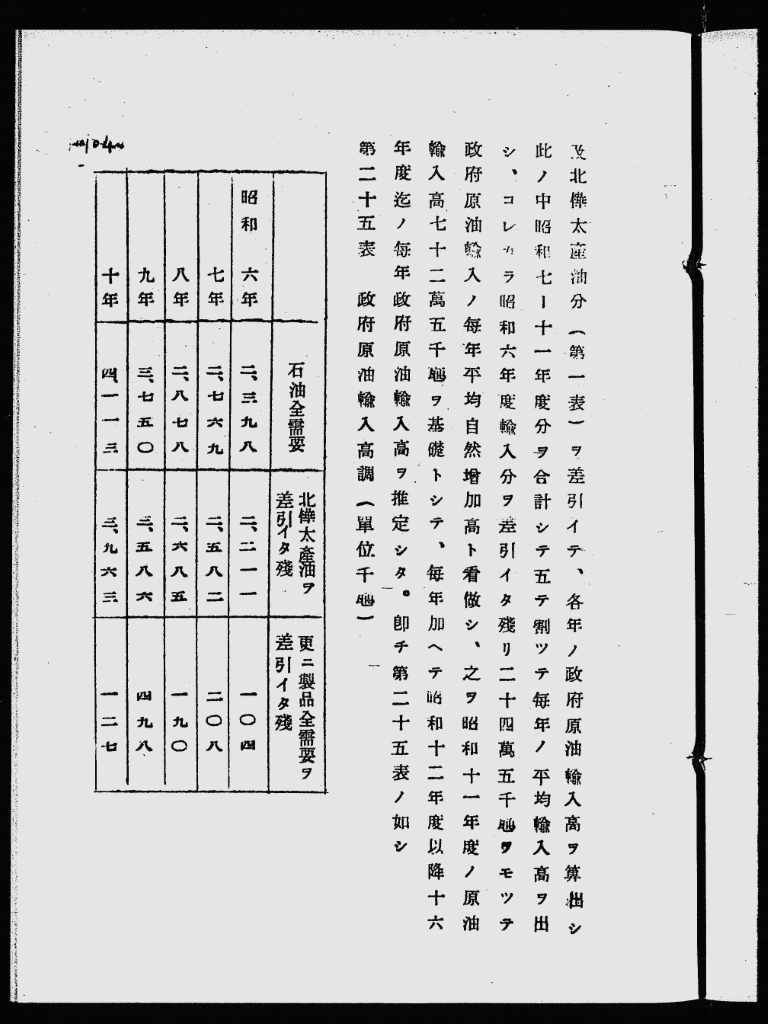 及北樺太產油分(第一表)ヲ差引イテ、各年ノ政府原油輸入高ヲ算出シ
此ノ中昭和七ー十一年度分ヲ合計シテ五テ割ツテ每年ノ平均輸入高ヲ出
シ、コレカラ昭和六年度輸入分ヲ差引イタ殘リ二十四萬五千瓲ヲモツテ
政府原油輸入ノ每年平均自然增加高ト看做シ、之ヲ昭和十一年度ノ原油
輸入高七十二萬五千瓲ヲ基礎トシテ、每年加ヘテ昭和十二年度以降十六
年度迄ノ每年政府原油輸入高ヲ推定シタ。卽チ第二十五表ノ如シ
第二十五表 政府原油輸入高調(單位千瓲)
石油全需要
北樺太產油ヲ
差引イタ殘
更ニ製品全需要ヲ
差引イタ殘
昭和 六年 二、三九八 二、二一一 一〇四
七年 二、七六九 二、五八二 二〇八
八年 二、八七八 二、六八五 一九〇
九年 三、七五〇 三、五八六 四九八
十年 四、一一三 三、九六三 一二七